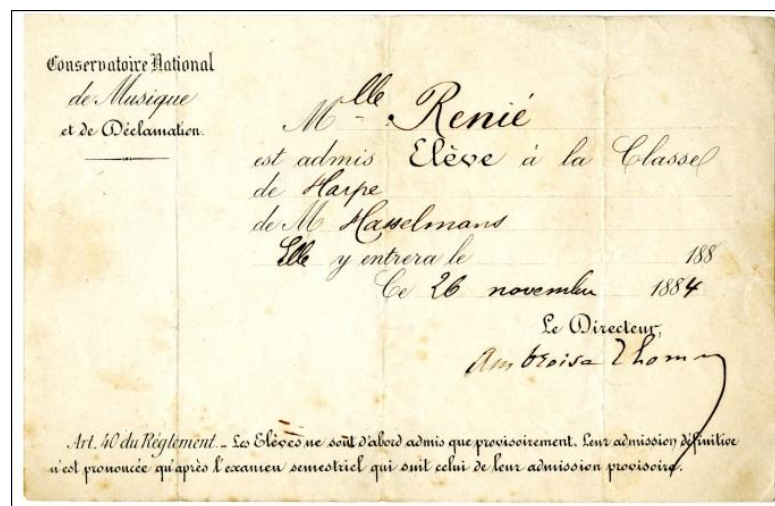 Conservatoire National
de Musique
et de Déclamation.
Mlle Renié
est admis Elève à la Classe
de Harpe
de M Hasselmans
Elle y entrera le 188
Ce 26 novembre 1884
Le Directeur,
Ambroise Thomas
Art. 40 du Règlement._ Les Elèves ne sont d'abord admis que provisoirement. Leur admission définitive
n'est prononcée qu'après l'examen semestriel qui suit celui de leur admission provisoire.